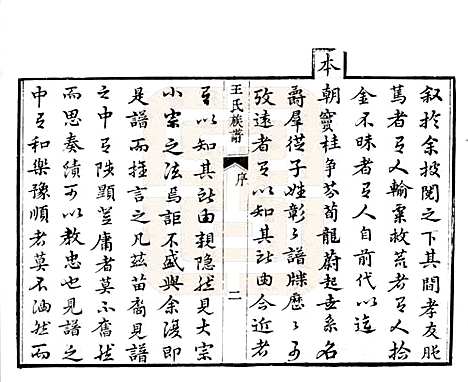 叙於余披閱之下其間孝友服
篤者有人輸粟救荒者有人拾
金不昧者有人自前代以迄
本朝竇桂爭芬荀龍蔚起世系名
爵羣從子姓彰〻譜牒歷〻可
攷遠者有以知其所由今近者
王氏族譜 序 二
有以知其所由親隱然見大宗
小宗之法焉詎不盛與余復即
是譜而推言之凡茲苗裔見譜
之中有陟顯登庸者莫不奮然
而思奏績可以教忠也見譜之
中有和樂豫順者莫不油然而